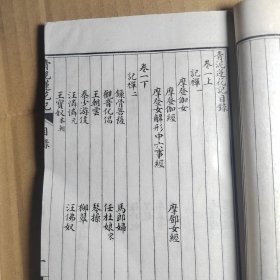 青泥蓮花記目錄
卷一上
記禪一
摩登伽女
摩登伽經 摩鄧女經
摩登女解形中六事經
卷一下
記禪二
鎖骨菩薩 馬郎婦
觀音化倡
王朝雲 琴操
秦少游妓 柳翠
汪佛奴
王寶奴
青泥蓮花記
目錄